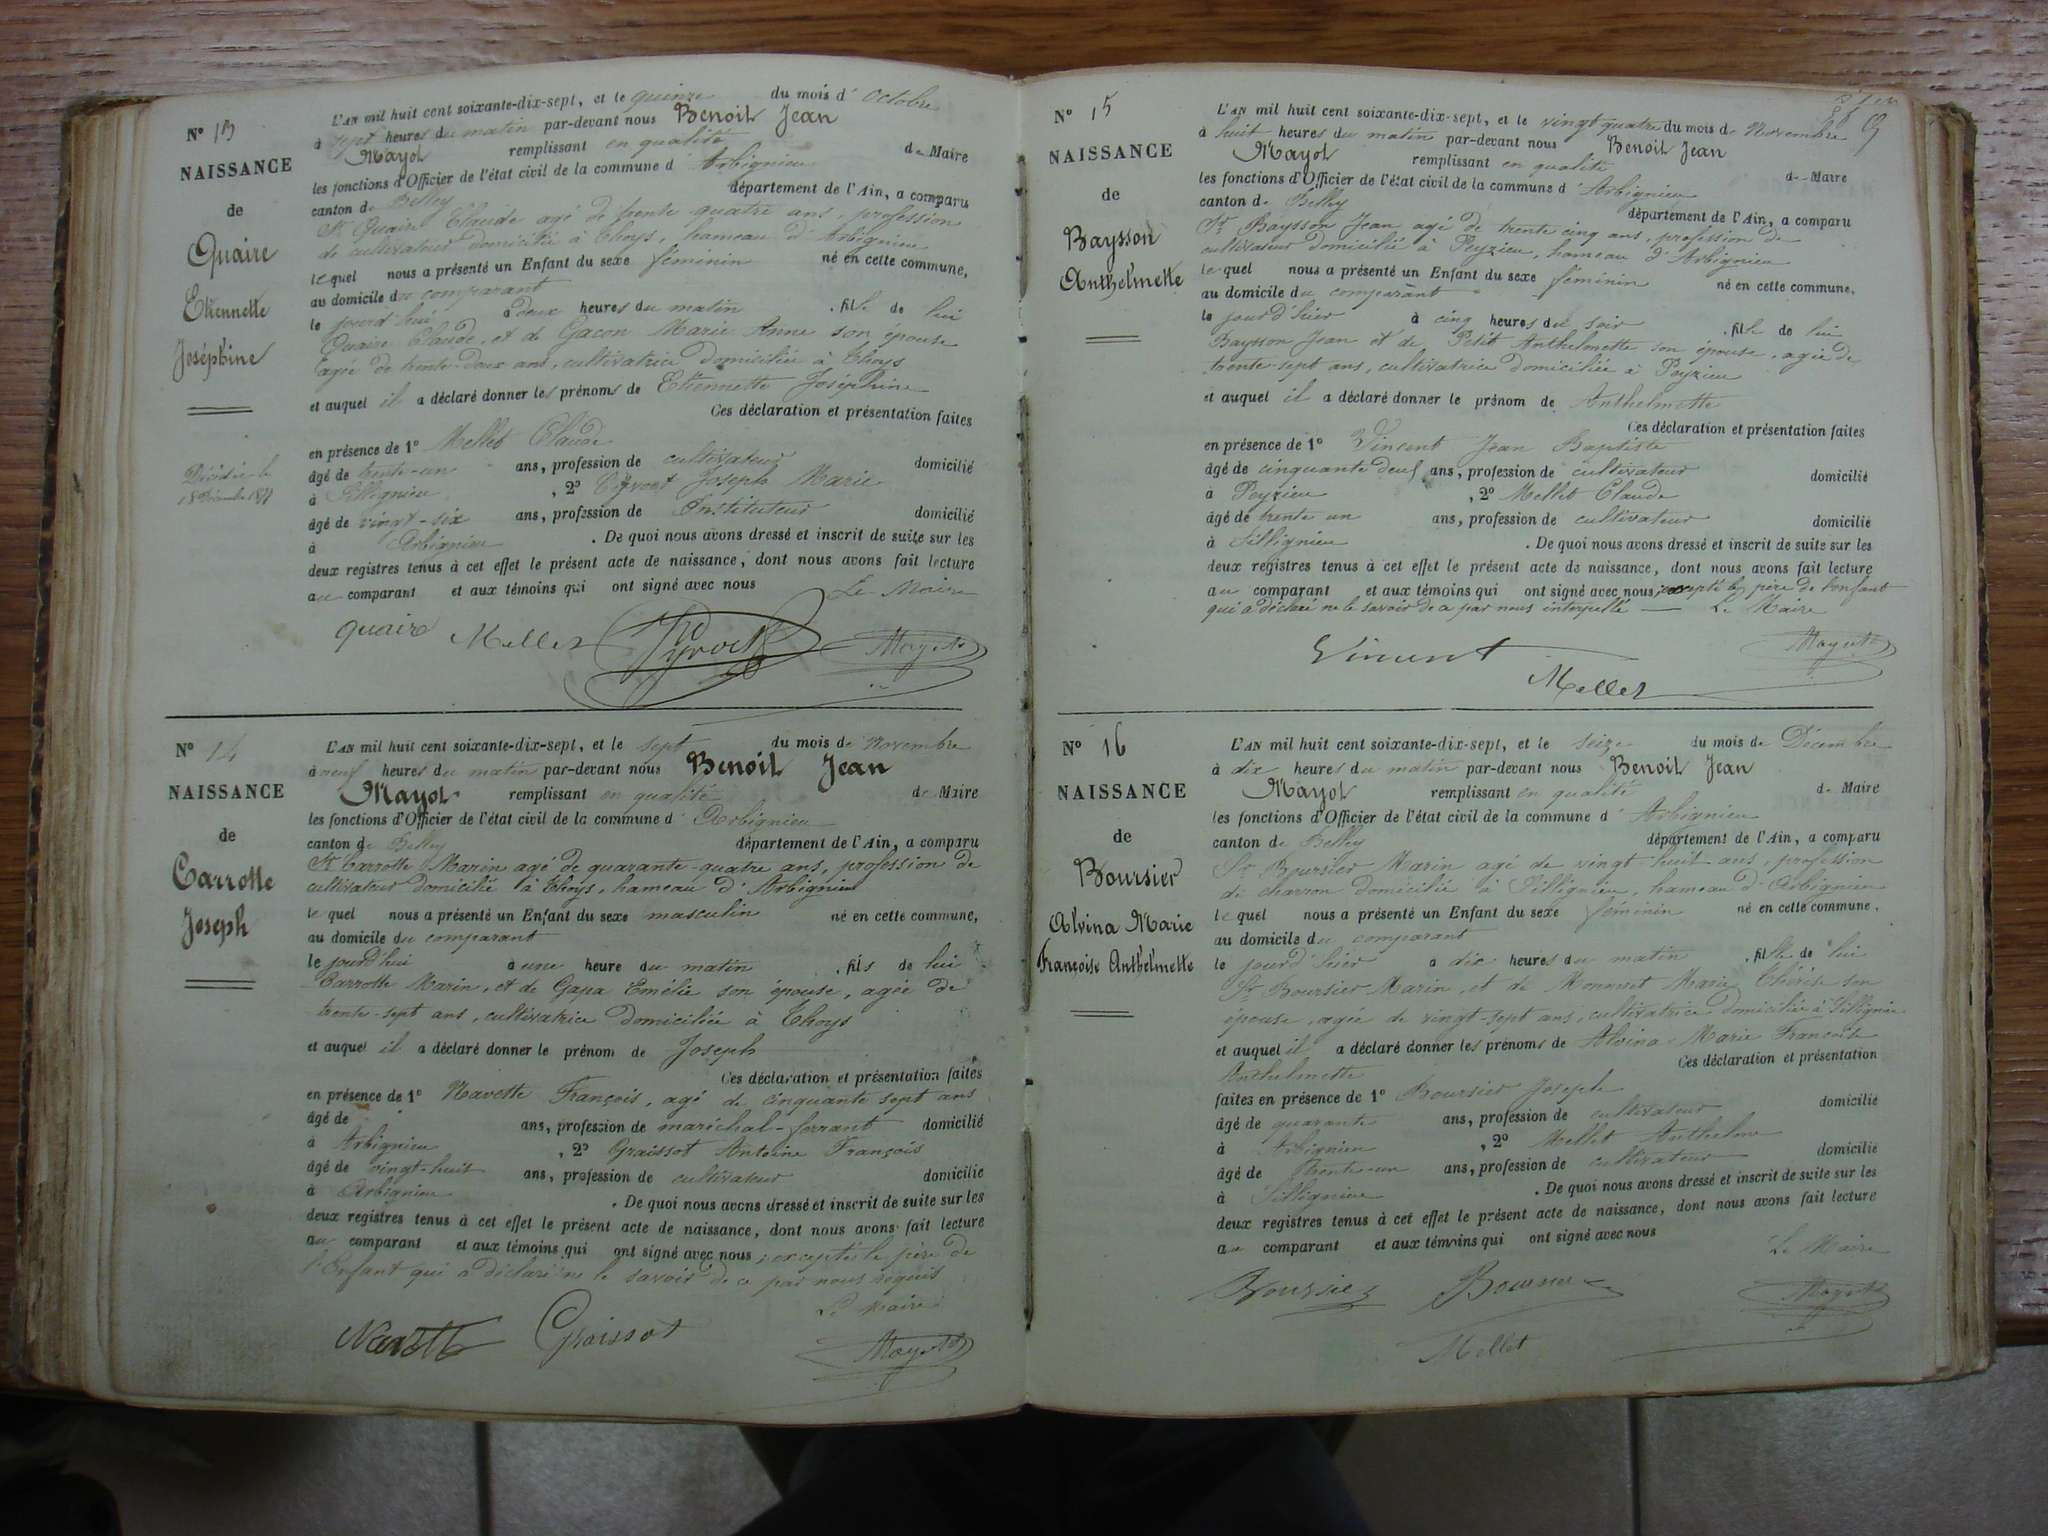 N° 13
NAISSANCE
de
Quaire
Etiennette
Joséphine
Décédée le
18 Décembre 1877
L'AN mil huit cent soixante-dix-sept, et le quinze du mois d' Octobre
à sept heures du matin par-devant nous Benoit Jean
Mayot remplissant en qualité de Maire
les fonctions d'Officier de l'état civil de la commune d' Arbignieu
canton de Belley département de l'Ain, a comparu
Sr Quaire Claude agé de trente quatre ans, profession
de cultivateur domicilié à Thoys, hameau d'Arbignieu
le quel nous a présenté un Enfant du sexe féminin né en cette commune,
au domicile du comparant
le jourd'hui à deux heures du matin, fille de lui
Quaire Claude, et de Gacon Marie Anne son épouse
agée de trente-deux ans, cultivatrice domiciliée à Thoys
et auquel il a déclaré donner les prénoms de Etiennette Joséphine
Ces déclaration et présentation faites
en présence de 1° Mellet Claude
âgé de trente-un ans, profession de cultivateur domicilié
à Sillignieu, 2° Joseph Marie
âgé de vingt-six ans, profession de Instituteur domicilié
à Arbignieu. De quoi nous avons dressé et inscrit de suite sur les
deux registres tenus à cet effet le présent acte de naissance, dont nous avons fait lecture
au comparant et aux témoins qui ont signé avec nous Le Maire
quaire Mellet Mayot
N° 14
NAISSANCE
de
Carrotte
Joseph
L'AN mil huit cent soixante-dix-sept, et le sept du mois de Novembre
à neuf heures du matin par-devant nous Benoit Jean
Mayot remplissant en qualité de Maire
les fonctions d'Officier de l'état civil de la commune d' Arbignieu
canton de Belley département de l'Ain, a comparu
Sr Carrotte Marin agé de quarante-quatre ans, profession de
cultivateur domicilié à Thoys, hameau d'Arbignieu
le quel nous a présenté un Enfant du sexe masculin né en cette commune,
au domicile du comparant
le jourd'hui à une heure du matin, fils de lui
Carrotte Marin, et de Gapa Emélie son épouse, agée de
trente-sept ans, cultivatrice domiciliée à Thoys
et auquel il a déclaré donner le prénom de Joseph
Ces déclaration et présentation faites
en présence de 1° Navette François, agé de cinquante sept ans
âgé de ans, profession de maréchal-ferrant domicilié
à Arbignieu, 2° Graissot Antoine François
âgé de vingt-huit ans, profession de cultivateur domicilié
à Arbignieu. De quoi nous avons dressé et inscrit de suite sur les
deux registres tenus à cet effet le présent acte de naissance, dont nous avons fait lecture
au comparant et aux témoins qui ont signé avec nous ; excepté le père de
l'Enfant qui a déclaré ne le savoir de ce par nous requis
Le Maire
Navette Graissot Mayot
N° 15
NAISSANCE
de
Baysson
Anthelmette
L'AN mil huit cent soixante-dix-sept, et le vingt quatre du mois de Novembre
à huit heures du matin par-devant nous Benoit Jean
Mayot remplissant en qualité de Maire
les fonctions d'Officier de l'état civil de la commune d' Arbignieu
canton de Belley département de l'Ain, a comparu
Sr Baysson Jean agé de trente cinq ans, profession de
cultivateur domicilié à Peyzieu, hameau d'Arbignieu
le quel nous a présenté un Enfant du sexe féminin né en cette commune,
au domicile du comparant
le jour d'hier à cinq heures du soir, fille de lui
Baysson Jean et de Petit Anthelmette son épouse, agée de
trente-sept ans, cultivatrice domiciliée à Peyzieu
et auquel il a déclaré donner le prénom de Anthelmette
Ces déclaration et présentation faites
en présence de 1° Vincent Jean Baptiste
âgé de cinquante deux ans, profession de cultivateur domicilié
à Peyzieu, 2° Mellet Claude
âgé de trente un ans, profession de cultivateur domicilié
à Sillignieu. De quoi nous avons dressé et inscrit de suite sur les
deux registres tenus à cet effet le présent acte de naissance, dont nous avons fait lecture
au comparant et aux témoins qui ont signé avec nous, excepté le père de l'enfant
qui a déclaré ne le savoir de ce par nous interpellé — Le Maire
Vincent Mayot
Mellet
N° 16
NAISSANCE
de
Boursier
Alvina Marie
Françoise Anthelmette
L'AN mil huit cent soixante-dix-sept, et le seize du mois de Décembre
à dix heures du matin par-devant nous Benoit Jean
Mayot remplissant en qualité de Maire
les fonctions d'Officier de l'état civil de la commune d' Arbignieu
canton de Belley département de l'Ain, a comparu
Sr Boursier Marin agé de vingt-huit ans, profession
de charron domicilié à Sillignieu, hameau d'Arbignieu
le quel nous a présenté un Enfant du sexe féminin né en cette commune,
au domicile du comparant
le jour d'hier à dix heures du matin, fille de lui
Sr Boursier Marin, et de Monnret Marie Thérèse son
épouse, agée de vingt-sept ans, cultivatrice domiciliée à Sillignieu
et auquel il a déclaré donner les prénoms de Alvina Marie Françoise
Anthelmette Ces déclaration et présentation
faites en présence de 1° Boursier Joseph
âgé de quarante ans, profession de cultivateur domicilié
à Arbignieu, 2° Mellet Anthelme
âgé de trente-un ans, profession de cultivateur domicilié
à Sillignieu. De quoi nous avons dressé et inscrit de suite sur les
deux registres tenus à cet effet le présent acte de naissance, dont nous avons fait lecture
au comparant et aux témoins qui ont signé avec nous
Le Maire
Boursier Boursier Mayot
Mellet